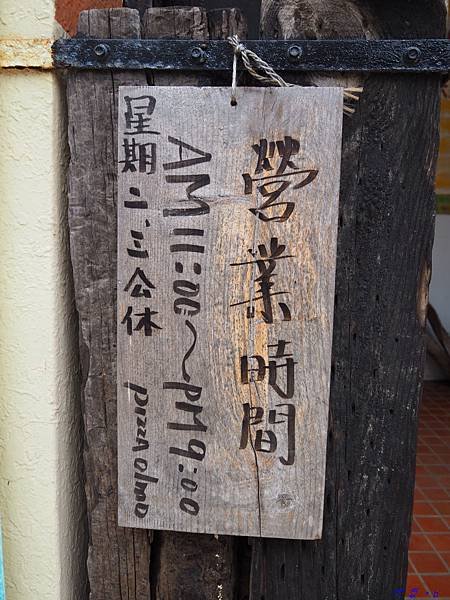 營業時間
AM 11:00～PM9:00
星期二、三公休
pizza olmo